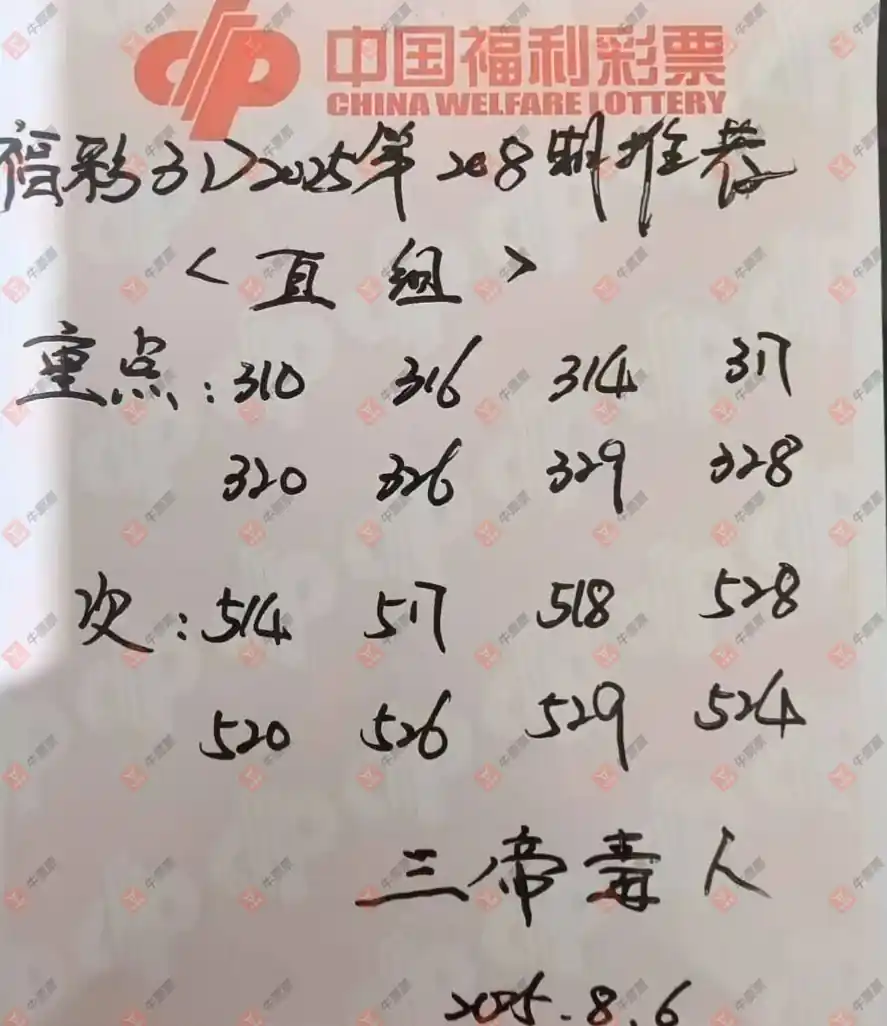 中国福利彩票
CHINA WELFARE LOTTERY
福彩3D2025第208期推荐
<直组>
重点:310 316 314 317
320 326 329 328
次:514 517 518 528
520 526 529 524
三帝毒人
2025.8.6